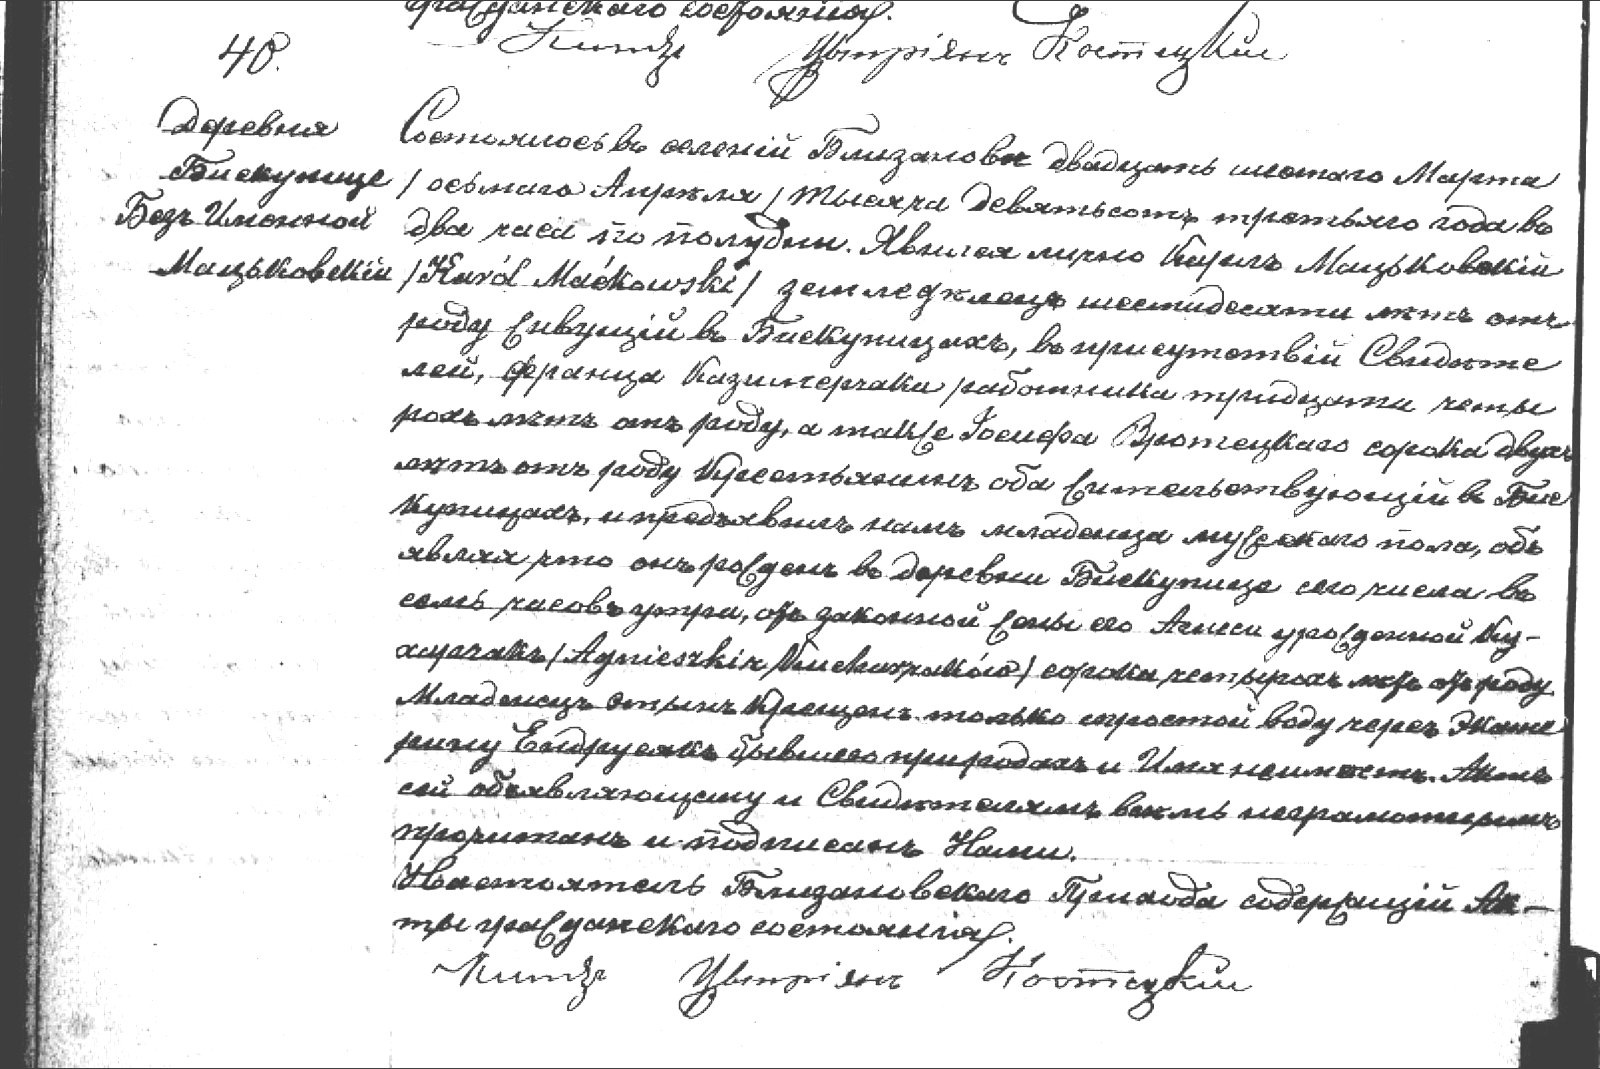 гражданскаго состоянія.
Ксіендзъ Цыпріянъ Костецкій
48.
Деревня
Бискупице
Безъ Именной
Мацьковскій
Состоялось въ селеніи Близановѣ двадцать шестаго Марта
/ осьмаго Апрѣля / тысяча девятьсотъ третьяго года въ
два часа по полудни. Явился лично Кароль Мацьковскій
/ Karól Maćkowski / земледѣлецъ шестидесяти лѣтъ отъ
роду живущій въ Бискупицахъ, въ присутствіи Свидѣте
лей, Франца Казимерчака работника тридцати четы
рохъ лѣтъ отъ роду, а также Іосифа Вротецкаго сорока двухъ
лѣтъ отъ роду крестьянинъ оба жительствующій въ Бис
купицахъ, и предъявилъ намъ младенца мужскаго пола, объ
являя что онъ рожденъ въ деревни Бискупице сего числа въ
семь часовъ утра, отъ законной жены его Агнеси урожденной Ку-
харчакъ / Agnieszkir Kucharzaków / сорока четырохъ лѣтъ отъ роду.
Младенецъ этынъ крещенъ только простой воду черезъ Экате
рину Ендрусякъ бывшего природахъ и Имя неимѣетъ. Актъ
сей объявляющему и Свидѣтелямъ всѣмъ неграмотнымъ
прочитанъ и подписанъ Нами.
Настоятель Близановскаго Прихода содержащій Ак-
ты гражданскаго состоянія.
Цыпріянъ Костецкій